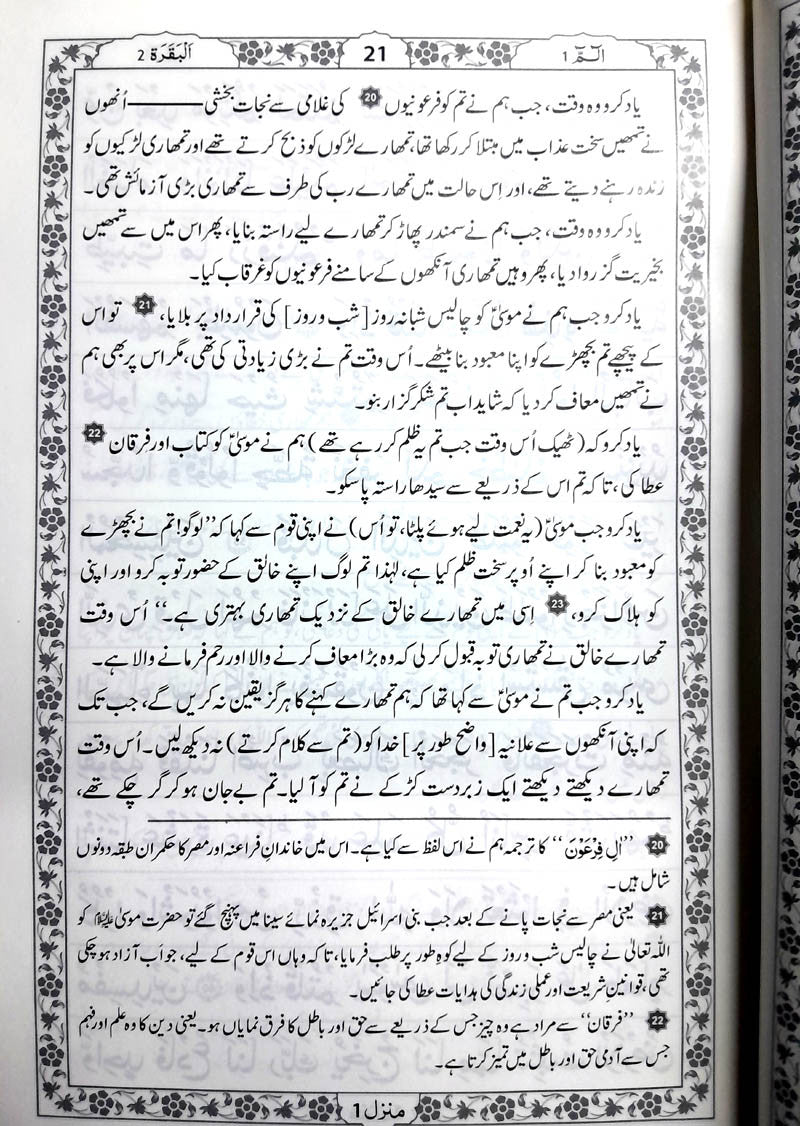 الٓمّٓ 1
21
اَلْبَقَرَة 2
یاد کرو وہ وقت، جب ہم نے تم کو فرعونیوں 20 کی غلامی سے نجات بخشی ـــــــــ اُنھوں
نے تمھیں سخت عذاب میں مبتلا کر رکھا تھا، تمھارے لڑکوں کو ذبح کرتے تھے اور تمھاری لڑکیوں کو
زندہ رہنے دیتے تھے، اور اِس حالت میں تمھارے رب کی طرف سے تمھاری بڑی آزمائش تھی۔
یاد کرو وہ وقت، جب ہم نے سمندر پھاڑ کر تمھارے لیے راستہ بنایا، پھر اس میں سے تمھیں
بخیریت گزروا دیا، پھر وہیں تمھاری آنکھوں کے سامنے فرعونیوں کو غرقاب کیا۔
یاد کرو جب ہم نے موسیٰؑ کو چالیس شبانہ روز [شب و روز] کی قرارداد پر بلایا، 21 تو اس
کے پیچھے تم بچھڑے کو اپنا معبود بنا بیٹھے۔ اُس وقت تم نے بڑی زیادتی کی تھی، مگر اس پر بھی ہم
نے تمھیں معاف کر دیا کہ شاید اب تم شکر گزار بنو۔
یاد کرو کہ (ٹھیک اُس وقت جب تم یہ ظلم کر رہے تھے) ہم نے موسیٰؑ کو کتاب اور فرقان 22
عطا کی، تاکہ تم اس کے ذریعے سے سیدھا راستہ پاسکو۔
یاد کرو جب موسیٰؑ (یہ نعمت لیے ہوئے پلٹا، تو اُس) نے اپنی قوم سے کہا کہ ’’لوگو! تم نے بچھڑے
کو معبود بنا کر اپنے اُوپر سخت ظلم کیا ہے، لہٰذا تم لوگ اپنے خالق کے حضور توبہ کرو اور اپنی
کو ہلاک کرو، 23 اِسی میں تمھارے خالق کے نزدیک تمھاری بہتری ہے۔‘‘ اُس وقت
تمھارے خالق نے تمھاری توبہ قبول کر لی کہ وہ بڑا معاف کرنے والا اور رحم فرمانے والا ہے۔
یاد کرو جب تم نے موسیٰؑ سے کہا تھا کہ ہم تمھارے کہنے کا ہرگز یقین نہ کریں گے، جب تک
کہ اپنی آنکھوں سے علانیہ [واضح طور پر] خدا کو (تم سے کلام کرتے) نہ دیکھ لیں۔ اُس وقت
تمھارے دیکھتے دیکھتے ایک زبردست کڑکے نے تم کو آ لیا۔ تم بے جان ہو کر گر چکے تھے،
20 ’’اٰلِ فِرْعَوْنَ‘‘ کا ترجمہ ہم نے اس لفظ سے کیا ہے۔ اس میں خاندانِ فراعنہ اور مصر کا حکمران طبقہ دونوں
شامل ہیں۔
21 یعنی مصر سے نجات پانے کے بعد جب بنی اسرائیل جزیرہ نمائے سینا میں پہنچ گئے تو حضرت موسیٰ علیہ السلام کو
اللہ تعالیٰ نے چالیس شب و روز کے لیے کوہِ طور پر طلب فرمایا، تاکہ وہاں اس قوم کے لیے، جو اَب آزاد ہو چکی
تھی، قوانینِ شریعت اور عملی زندگی کی ہدایات عطا کی جائیں۔
22 ’’فرقان‘‘ سے مراد ہے وہ چیز جس کے ذریعے سے حق اور باطل کا فرق نمایاں ہو۔ یعنی دین کا وہ علم اور فہم
جس سے آدمی حق اور باطل میں تمیز کرتا ہے۔
منزل 1